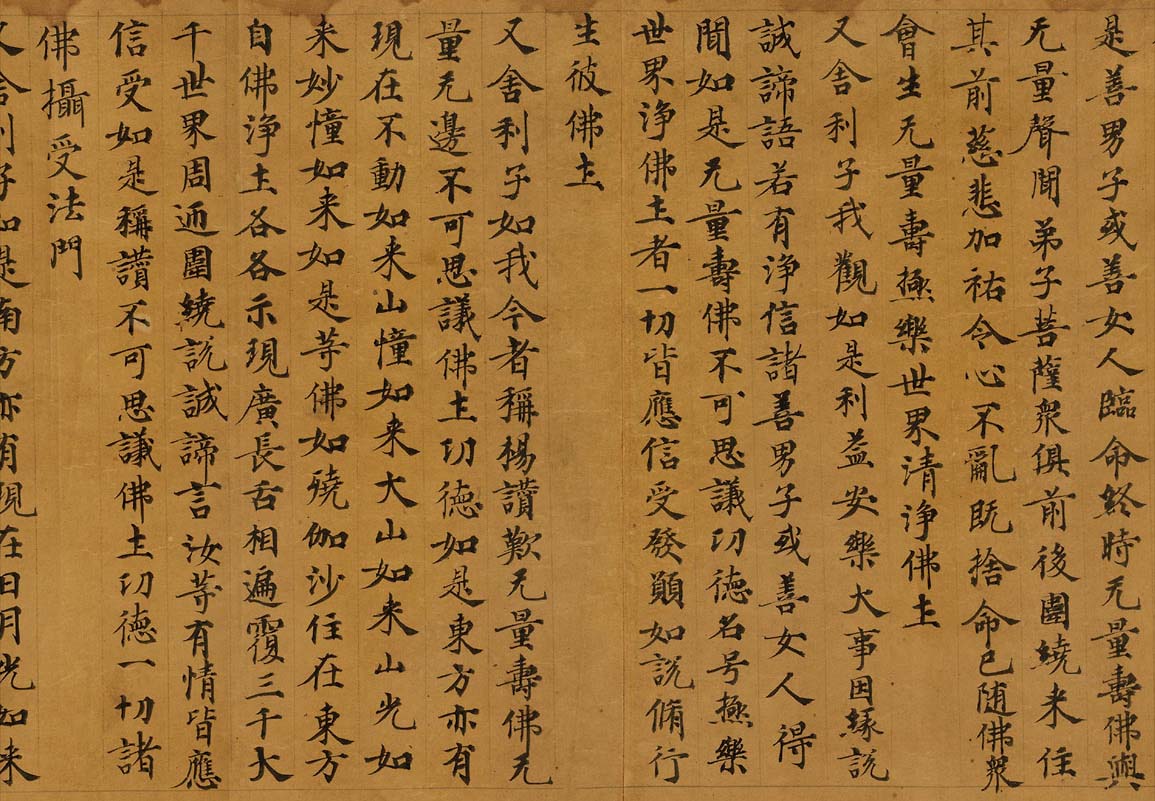 是善男子或善女人臨命終時无量壽佛與
无量聲聞弟子菩薩衆俱前後圍繞来住
其前慈悲加祐令心不亂既捨命已随佛衆
會生无量壽極樂世界清淨佛土
又舍利子我觀如是利益安樂大事因緣説
誠諦語若有淨信諸善男子或善女人得
聞如是无量壽佛不可思議功德名号極樂
世界淨佛土者一切皆應信受發願如説脩行
生彼佛土
又舍利子如我今者稱楊讚歎无量壽佛无
量无邊不可思議佛土功德如是東方亦有
現在不動如来山憧如来大山如来山光如
来妙憧如来如是等佛如殑伽沙住在東方
自佛淨土各各示現廣長舌相遍覆三千大
千世界周迊圍繞説誠諦言汝等有情皆應
信受如是稱讚不可思議佛土功德一切諸
佛攝受法門
又舍利子如是南方亦有現在日月光如来